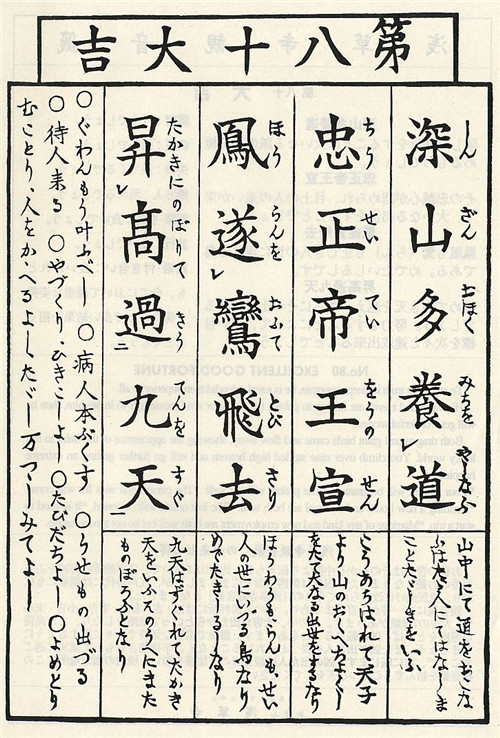 第八十大吉
深山多養道
しんざんおほくみちをやなふ
山中にて道をおこな
ふはたゞ人にてはなしま
ことたゞしきをいふ
忠正帝王宣
ちうせいていをうのせん
こゝろあらはれて天子
より山のおくへちよくし
をたて大なる出世をするなり
鳳遂レ鸞飛去
ほうらんをおふてとびさり
ほうわうもらんも、せい
人の世にいづる鳥なり
めでたきしるしなり
昇レ高過二九天一
たかきにのぼりてきうてんをすぐ
九天はすぐれて大かき
天をいふ其のうへにまた
ものぼろふとなり
〇ぐわんもう叶ふべし 〇病人本ぷくす 〇うせもの出づる
〇待人来る 〇やづくり、ひきこしよし 〇たびだちよし 〇よめとり
むことり、人をかゝへるよしたゞし万つゝしみてよし